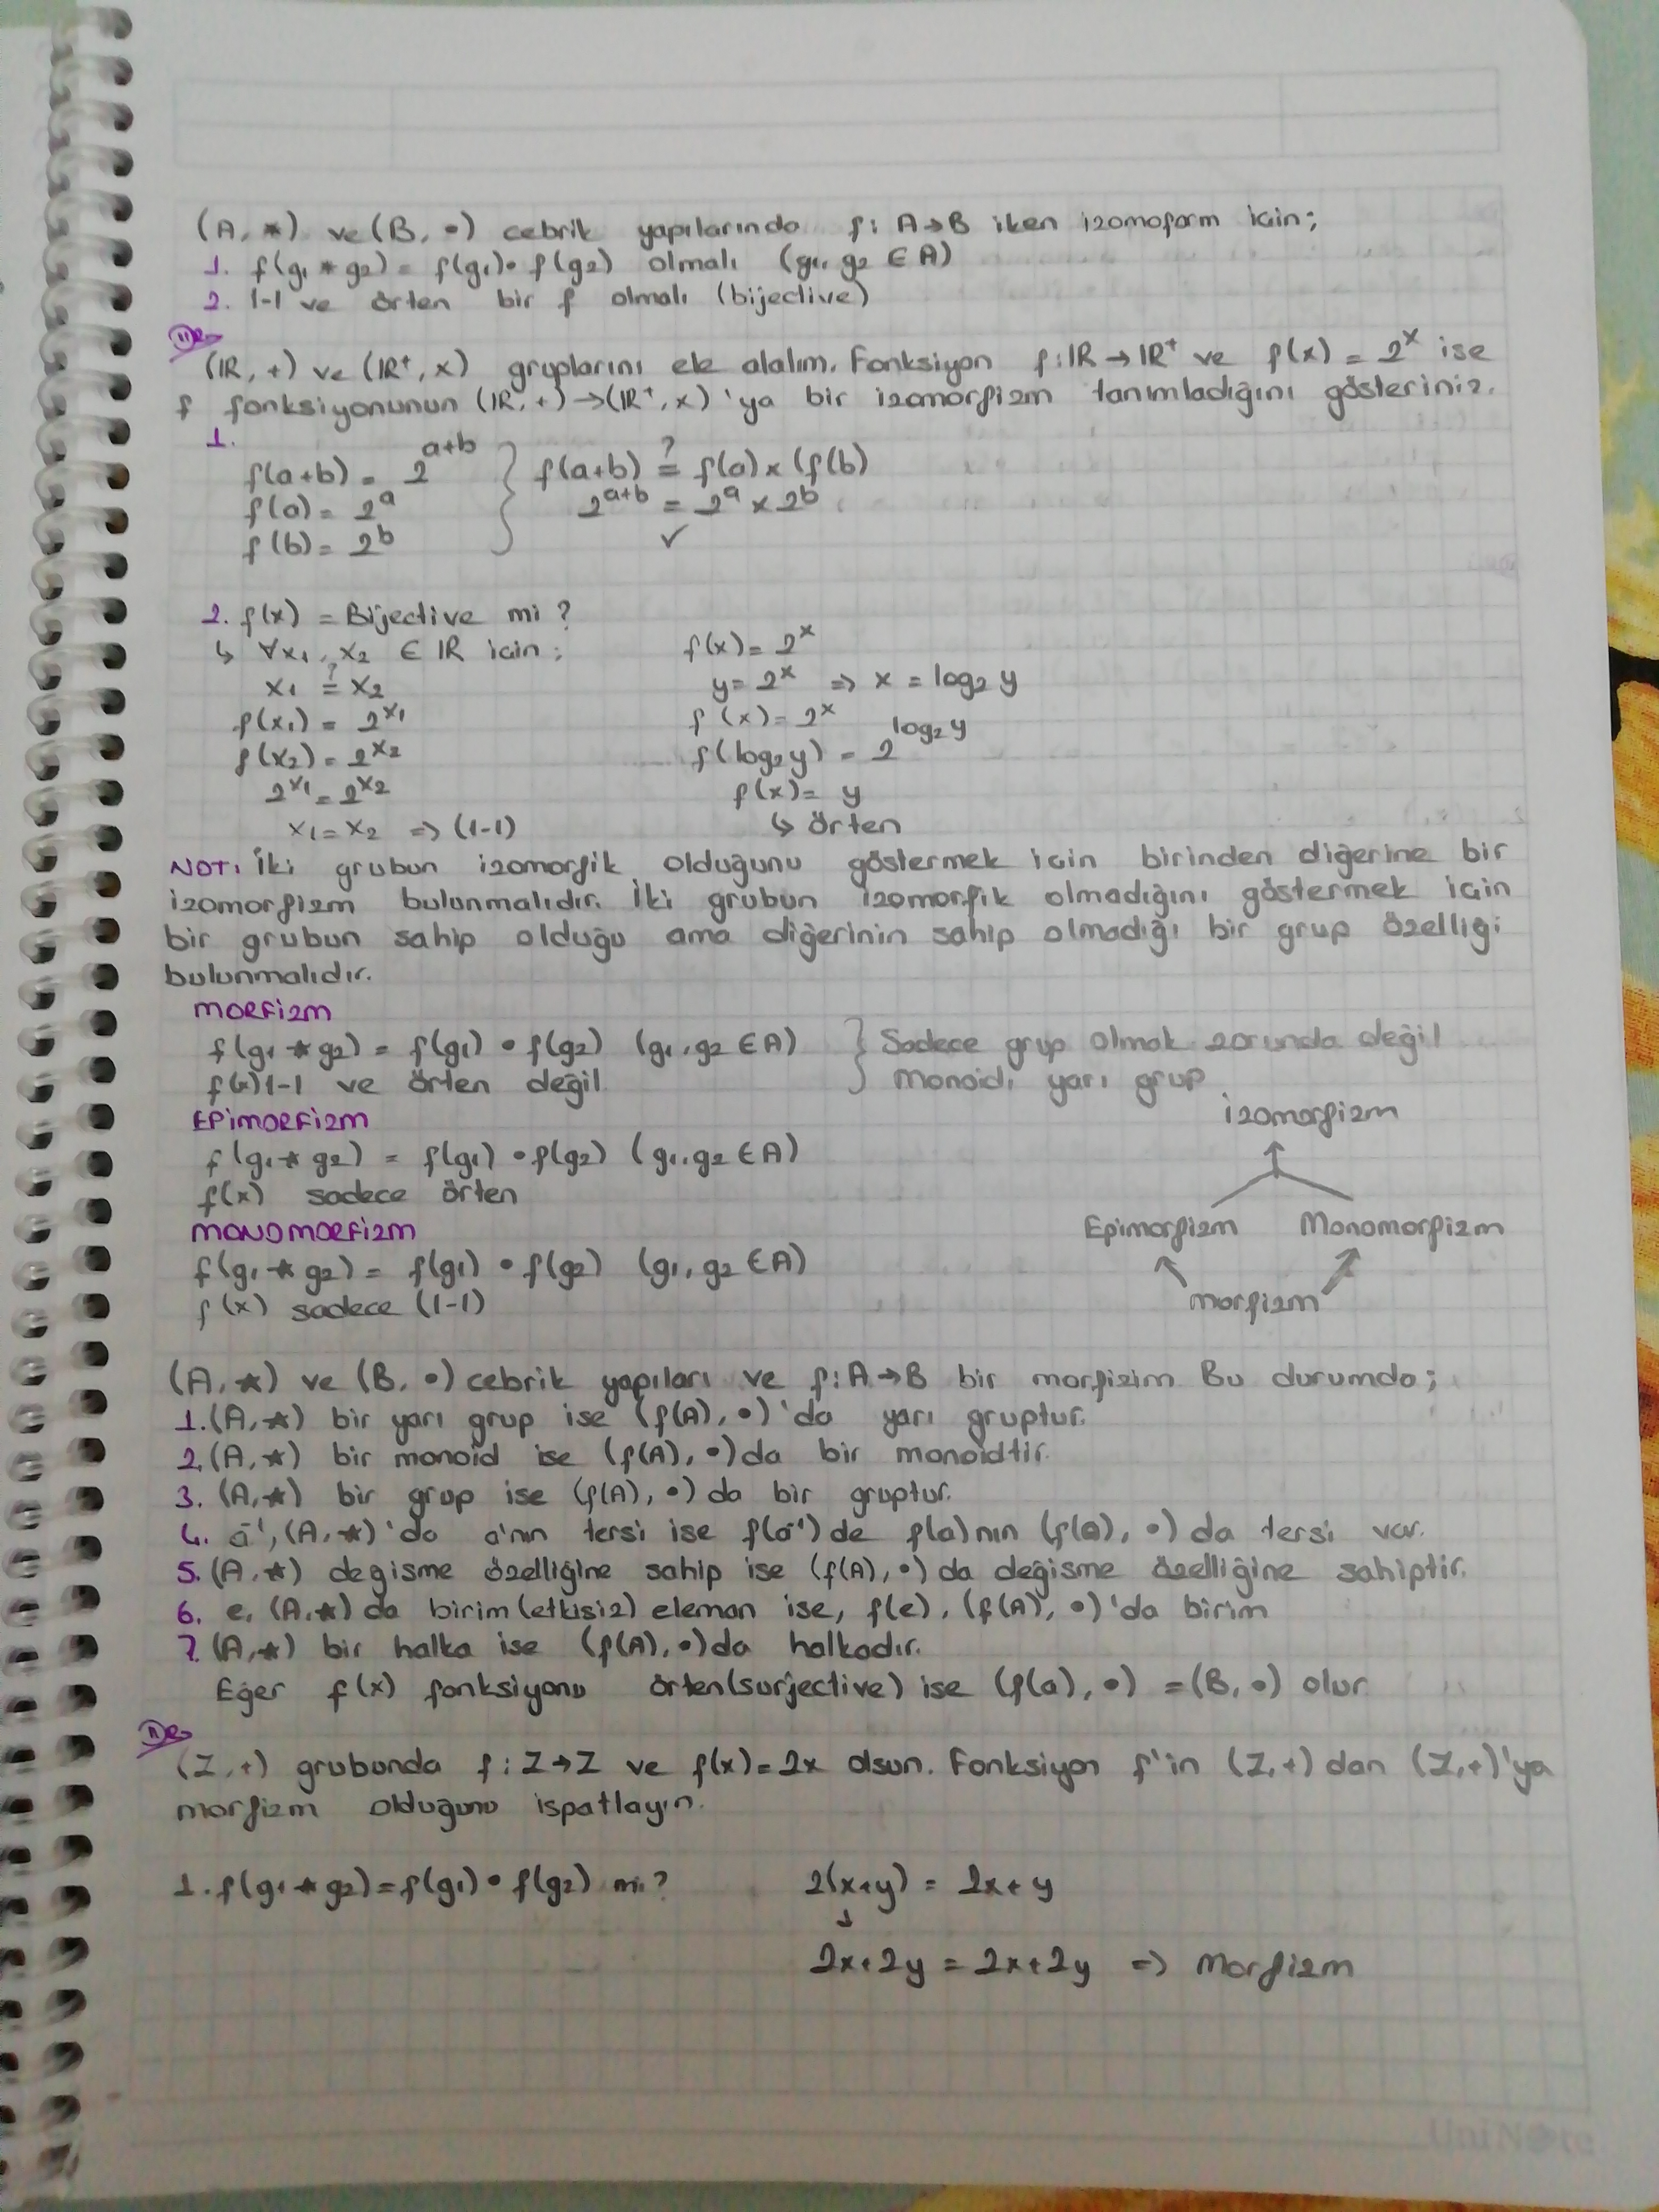 (A, ★) ve (B, •) cebrik yapılarında f: A→B iken izomoform için;
1. f(g₁ ★ g₂) = f(g₁) • f(g₂) olmalı (g₁, g₂ ∈ A)
2. 1-1 ve örten bir f olmalı (bijective)
(IR, +) ve (IR⁺, x) gruplarını ele alalım. Fonksiyon f: IR → IR⁺ ve f(x) = 2ˣ ise
f fonksiyonunun (IR, +) → (IR⁺, x) 'ya bir izomorfizm tanımladığını gösteriniz.
1.
f(a+b) = 2^(a+b) } f(a+b) ≟ f(a) x (f(b)
f(a) = 2^a 2^(a+b) = 2^a x 2^b
f(b) = 2^b ✓
2. f(x) = Bijective mi?
↳ ∀x₁, x₂ ∈ IR için;
x₁ ≟ x₂
f(x₁) = 2^x₁
f(x₂) = 2^x₂
2^x₁ = 2^x₂
x₁ = x₂ ⇒ (1-1)
f(x) = 2ˣ
y = 2ˣ ⇒ x = log₂ y
f(x) = 2ˣ
f(log₂y) = 2^(log₂y)
f(x) = y
↳ örten
NOT: İki grubun izomorfik olduğunu göstermek için birinden diğerine bir
izomorfizm bulunmalıdır. İki grubun izomorfik olmadığını göstermek için
bir grubun sahip olduğu ama diğerinin sahip olmadığı bir grup özelliği
bulunmalıdır.
MORFİZM
f(g₁ ★ g₂) = f(g₁) • f(g₂) (g₁, g₂ ∈ A) } Sadece grup olmak zorunda değil
f(x) 1-1 ve örten değil Monoid, yarı grup
EPİMORFİZM
f(g₁ ★ g₂) = f(g₁) • f(g₂) (g₁, g₂ ∈ A)
f(x) sadece örten
MONOMORFİZM
f(g₁ ★ g₂) = f(g₁) • f(g₂) (g₁, g₂ ∈ A)
f(x) sadece (1-1)
İzomorfizm
Epimorfizm Monomorfizm
Morfizm
(A, ★) ve (B, •) cebrik yapıları ve f: A→B bir morfizim Bu durumda;
1. (A, ★) bir yarı grup ise (f(A), •) 'da yarı gruptur.
2. (A, ★) bir monoid ise (f(A), •) da bir monoidtir.
3. (A, ★) bir grup ise (f(A), •) da bir gruptur.
4. a⁻¹, (A, ★) 'da a'nın tersi ise f(a⁻¹) de f(a) nın (f(A), •) da tersi var.
5. (A, ★) degisme özelliğine sahip ise (f(A), •) da değisme özelliğine sahiptir.
6. e, (A, ★) da birim (etkisiz) eleman ise, f(e), (f(A), •) 'da birim
7. (A, ★) bir halka ise (f(A), •) da halkadır.
Eğer f(x) fonksiyonu örten (surjective) ise (f(a), •) = (B, •) olur
(Z, +) grubunda f: Z→Z ve f(x) = 2x olsun. Fonksiyon f'in (Z, +) dan (Z, +) 'ya
morfizm olduğunu ispatlayın.
1. f(g₁ ★ g₂) = f(g₁) • f(g₂) mi? 2(x+y) = 2x + y
↓
2x + 2y = 2x + 2y ⇒ Morfizm
UniNote